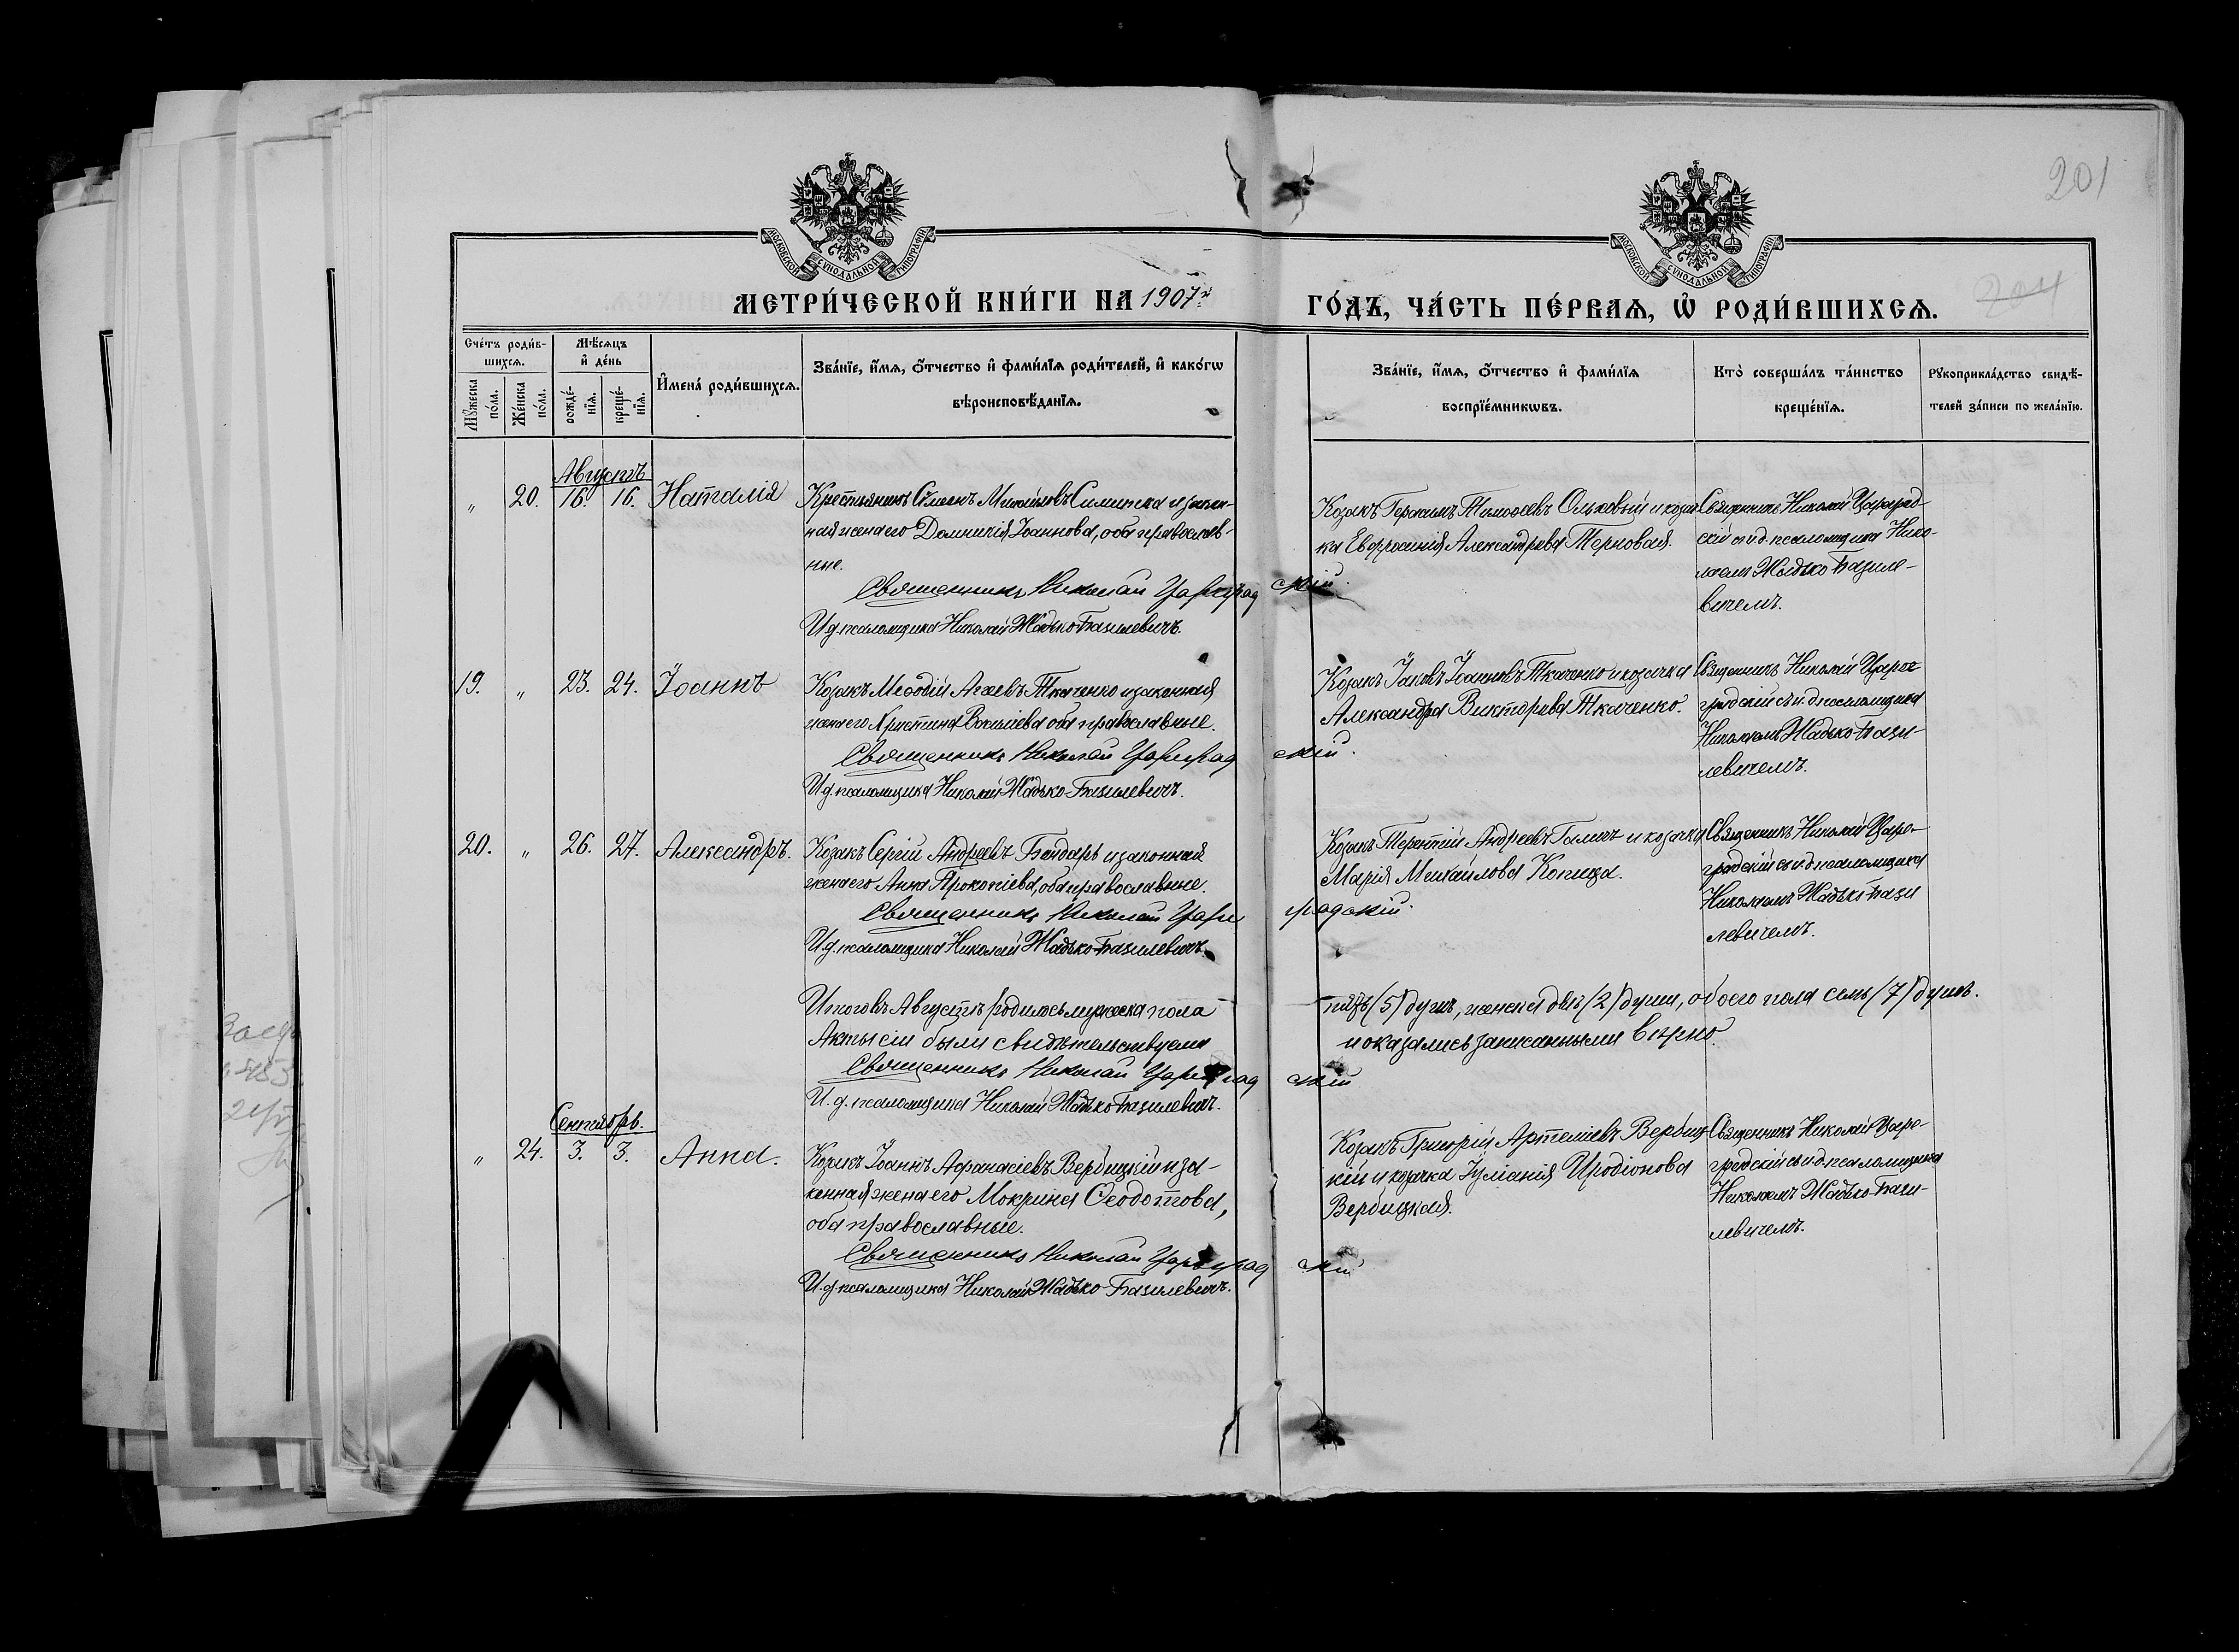 201
МОСКОВСКОЙ СУНОДАЛЬНОЙ ТИПОГРАФІИ
МОСКОВСКОЙ СУНОДАЛЬНОЙ ТИПОГРАФІИ
МЕТРИ́ЧЕСКОЙ КНИ́ГИ НА 1907й
ГО́ДЪ, ЧА́СТЬ ПЕ́РВАѦ, Ѡ҆ РОДИ́ВШИХСѦ.
204
Сче́тъ роди́в-
шихсѧ.
Мꙋ́жеска по́ла.
Же́нска по́ла.
Мѣ́сѧцъ
и҆ де́нь
рожде́-
нїѧ.
креще́-
нїѧ.
И҆мена̀ роди́вшихсѧ.
Зва́нїе, и҆́мѧ, ѻ҆́тчество и҆ фами́лїѧ роди́телей, и҆ како́гѡ
вѣроисповѣ́данїѧ.
Зва́нїе, и҆́мѧ, ѻ҆́тчество и҆ фами́лїѧ
воспрїе́мникѡвъ.
Кто̀ соверша́лъ та́инство
креще́нїѧ.
Рꙋкоприкла́дство свидѣ́-
телей за́писи по жела́нїю.
Августъ
„ 20. 16. 16. Наталія
Крестьянинъ Сѵмеонъ Михайловъ и закон-
ная жена его Домникія Іоаннова, оба православ-
ные.
Священникъ Николай Цареградскій.
И д. псаломщика Николай Жадько-Базилевичъ.
Козакъ Герасимъ Тимофеевъ Ольховый и козач-
ка Евфросинія Александрова Терновая.
Священникъ Николай Цареград-
скій с и д. псаломщика Нико-
лаемъ Жадько-Базиле-
вичемъ.
19. „ 23. 24. Іоаннъ
Козакъ Меѳодій Агаевъ Ткаченко и законная
жена его Христина Васильева оба православные.
Священникъ Николай Цареградскій.
И д. псаломщика Николай Жадько-Базилевичъ.
Козакъ Іаковъ Іоанновъ Ткаченко и козачка
Александра Викторова Ткаченко.
Священникъ Николай Царе-
градскій съ и. д. псаломщика
Николаемъ Жадько-Бази-
левичемъ.
20. „ 26. 27. Александръ.
Козакъ Сергій Андреевъ Бондарь и законная
жена его Анна Прокопіева, оба православные.
Священникъ Николай Цареградскій.
И д. псаломщика Николай Жадько-Базилевичъ.
Козакъ Терентій Андреевъ Галичъ и козачка
Марія Михайлова Копица.
Священникъ Николай Царе-
градскій съ и д. псаломщика
Николаемъ Жадько-Бази
левичемъ.
Итого въ Августѣ родилось мужеска пола – пять (5) душъ, женска двѣ (2) души, обоего пола семь (7) душъ.
Акты сіи были свидѣтельствуемы и оказались записанными вѣрно.
Священникъ Николай Цареградскій
И. д. псаломщика Николай Жадько-Базилевичъ.
Сентябрь.
„ 24. 3. 3. Анна.
Козакъ Іоаннъ Аѳанасіевъ Вербицкій и за-
конная жена его Мокрина Ѳеодотова,
оба православные.
Священникъ Николай Цареградскій
И. д. псаломщика Николай Жадько Базилевичъ.
Козакъ Григорій Артеміевъ Вербиц-
кій и козачка Іуліанія Иродіонова
Вербицкая.
Священникъ Николай Царе-
градскій съ и д. псаломщика
Николаемъ Жадько-Бази-
левичемъ.